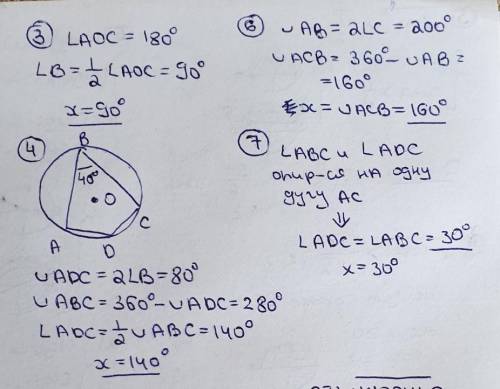 ③ ∠AOC = 180°
∠B = ½ ∠AOC = 90°
x = 90°
④
B
40°
O
C
A
D
∪ADC = 2∠B = 80°
∪ABC = 360° - ∪ADC = 280°
∠ADC = ½ ∪ABC = 140°
x = 140°
⑥ ∪AB = 2∠C = 200°
∪ACB = 360° - ∪AB =
= 160°
x = ∪ACB = 160°
⑦ ∠ABC и ∠ADC
опир-ся на одну
дугу AC
⇓
∠ADC = ∠ABC = 30°
x = 30°